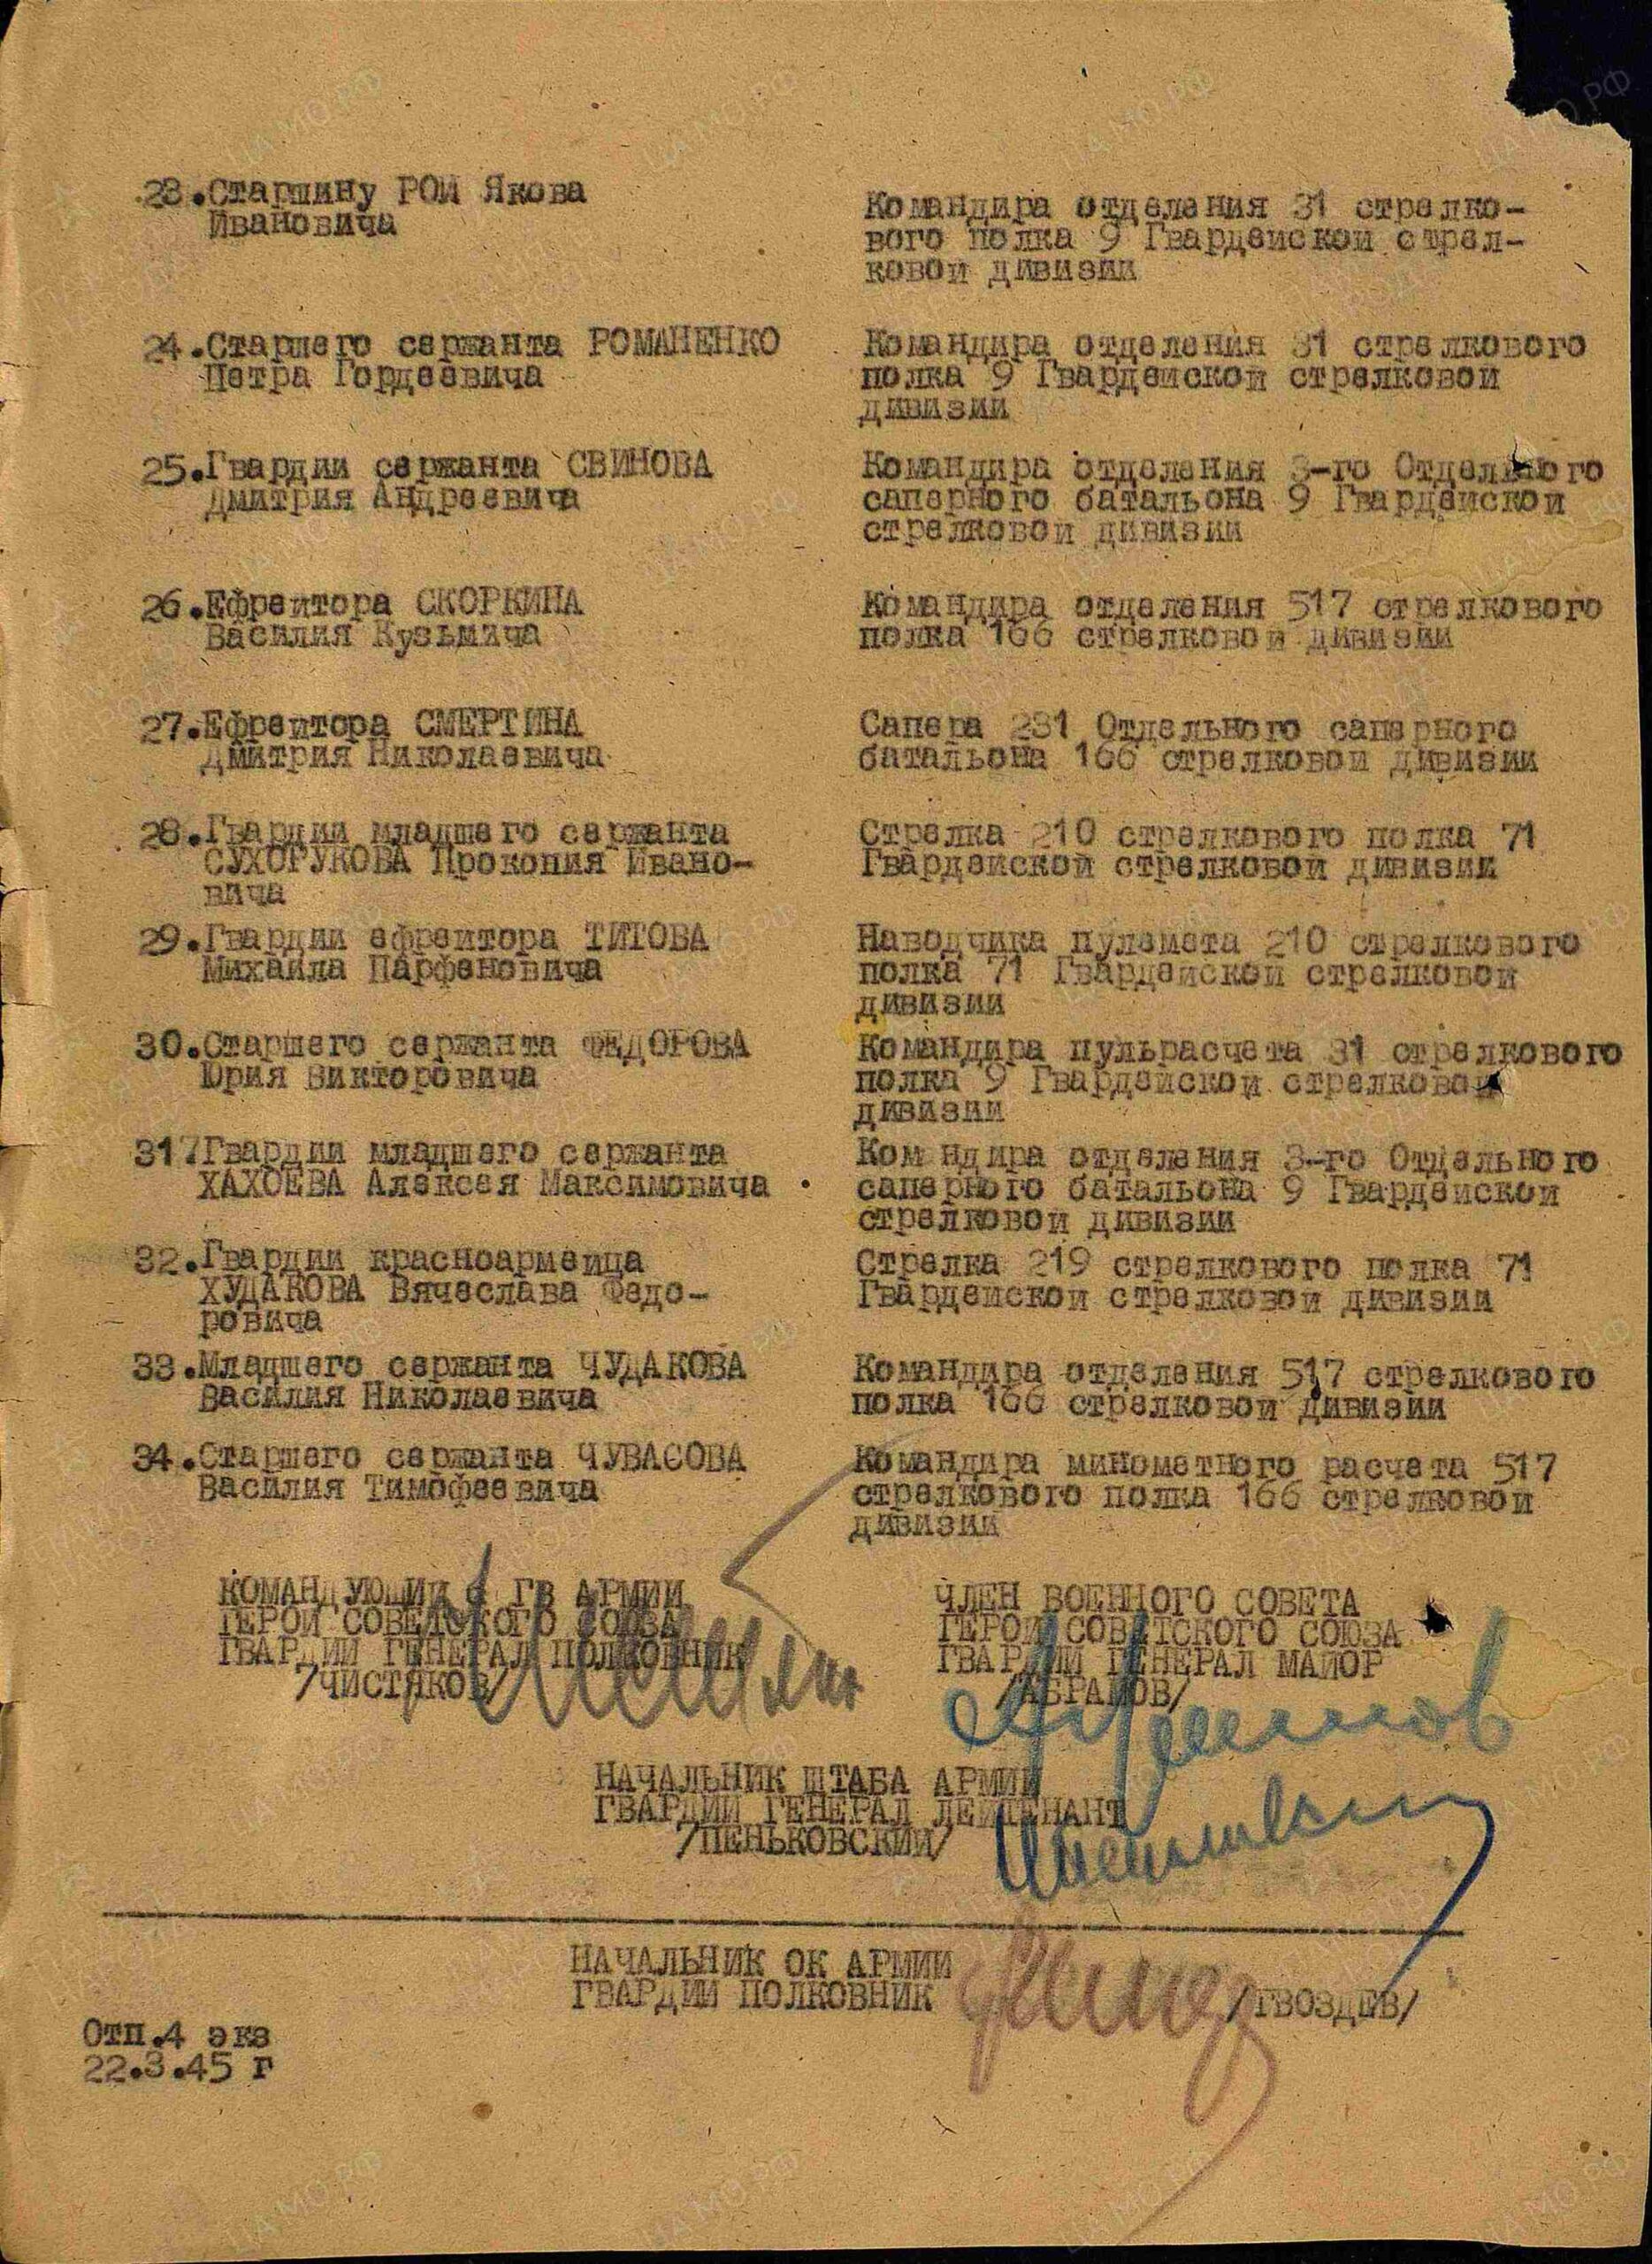 23.Старшину РОЙ Якова
Ивановича
Командира отделения 31 стрелко-
вого полка 9 Гвардейской стрел-
ковой дивизии
24.Старшего сержанта РОМАНЕНКО
Петра Гордеевича
Командира отделения 31 стрелкового
полка 9 Гвардейской стрелковой
дивизии
25.Гвардии сержанта СВИНОВА
Дмитрия Андреевича
Командира отделения 3-го Отдельного
саперного батальона 9 Гвардейской
стрелковой дивизии
26.Ефрейтора СКОРКИНА
Василия Кузьмича
Командира отделения 517 стрелкового
полка 166 стрелковой дивизии
27.Ефрейтора СМЕРТИНА
Дмитрия Николаевича
Сапера 231 Отдельного саперного
батальона 166 стрелковой дивизии
28.Гвардии младшего сержанта
СУХОРУКОВА Прокопия Ивано-
вича
Стрелка 210 стрелкового полка 71
Гвардейской стрелковой дивизии
29.Гвардии ефрейтора ТИТОВА
Михаила Парфеновича
Наводчика пулемета 210 стрелкового
полка 71 Гвардейской стрелковой
дивизии
30.Старшего сержанта ФЕДОРОВА
Юрия Викторовича
Командира пульрасчета 31 стрелкового
полка 9 Гвардейской стрелковой
дивизии
317Гвардии младшего сержанта
ХАХОЕВА Алексея Максимовича
Ком ндира отделения 3-го Отдельного
саперного батальона 9 Гвардейской
стрелковой дивизии
32.Гвардии красноармейца
ХУДАКОВА Вячеслава Федо-
ровича
Стрелка 219 стрелкового полка 71
Гвардейской стрелковой дивизии
33.Младшего сержанта ЧУДАКОВА
Василия Николаевича
Командира отделения 517 стрелкового
полка 166 стрелковой дивизии
34.Старшего сержанта ЧУВАСОВА
Василия Тимофеевича
Командира минометного расчета 517
стрелкового полка 166 стрелковой
дивизии
КОМАНДУЮЩИЙ 6 ГВ АРМИИ
ГЕРОЙ СОВЕТСКОГО СОЮЗА
ГВАРДИИ ГЕНЕРАЛ ПОЛКОВНИК
/ЧИСТЯКОВ/
ЧЛЕН ВОЕННОГО СОВЕТА
ГЕРОЙ СОВЕТСКОГО СОЮЗА
ГВАРДИИ ГЕНЕРАЛ МАЙОР
/АБРАМОВ/
НАЧАЛЬНИК ШТАБА АРМИИ
ГВАРДИИ ГЕНЕРАЛ ЛЕЙТЕНАНТ
/ПЕНЬКОВСКИЙ/
НАЧАЛЬНИК ОК АРМИИ
ГВАРДИИ ПОЛКОВНИК
/ГВОЗДЕВ/
Отп.4 экз
22.3.45 г